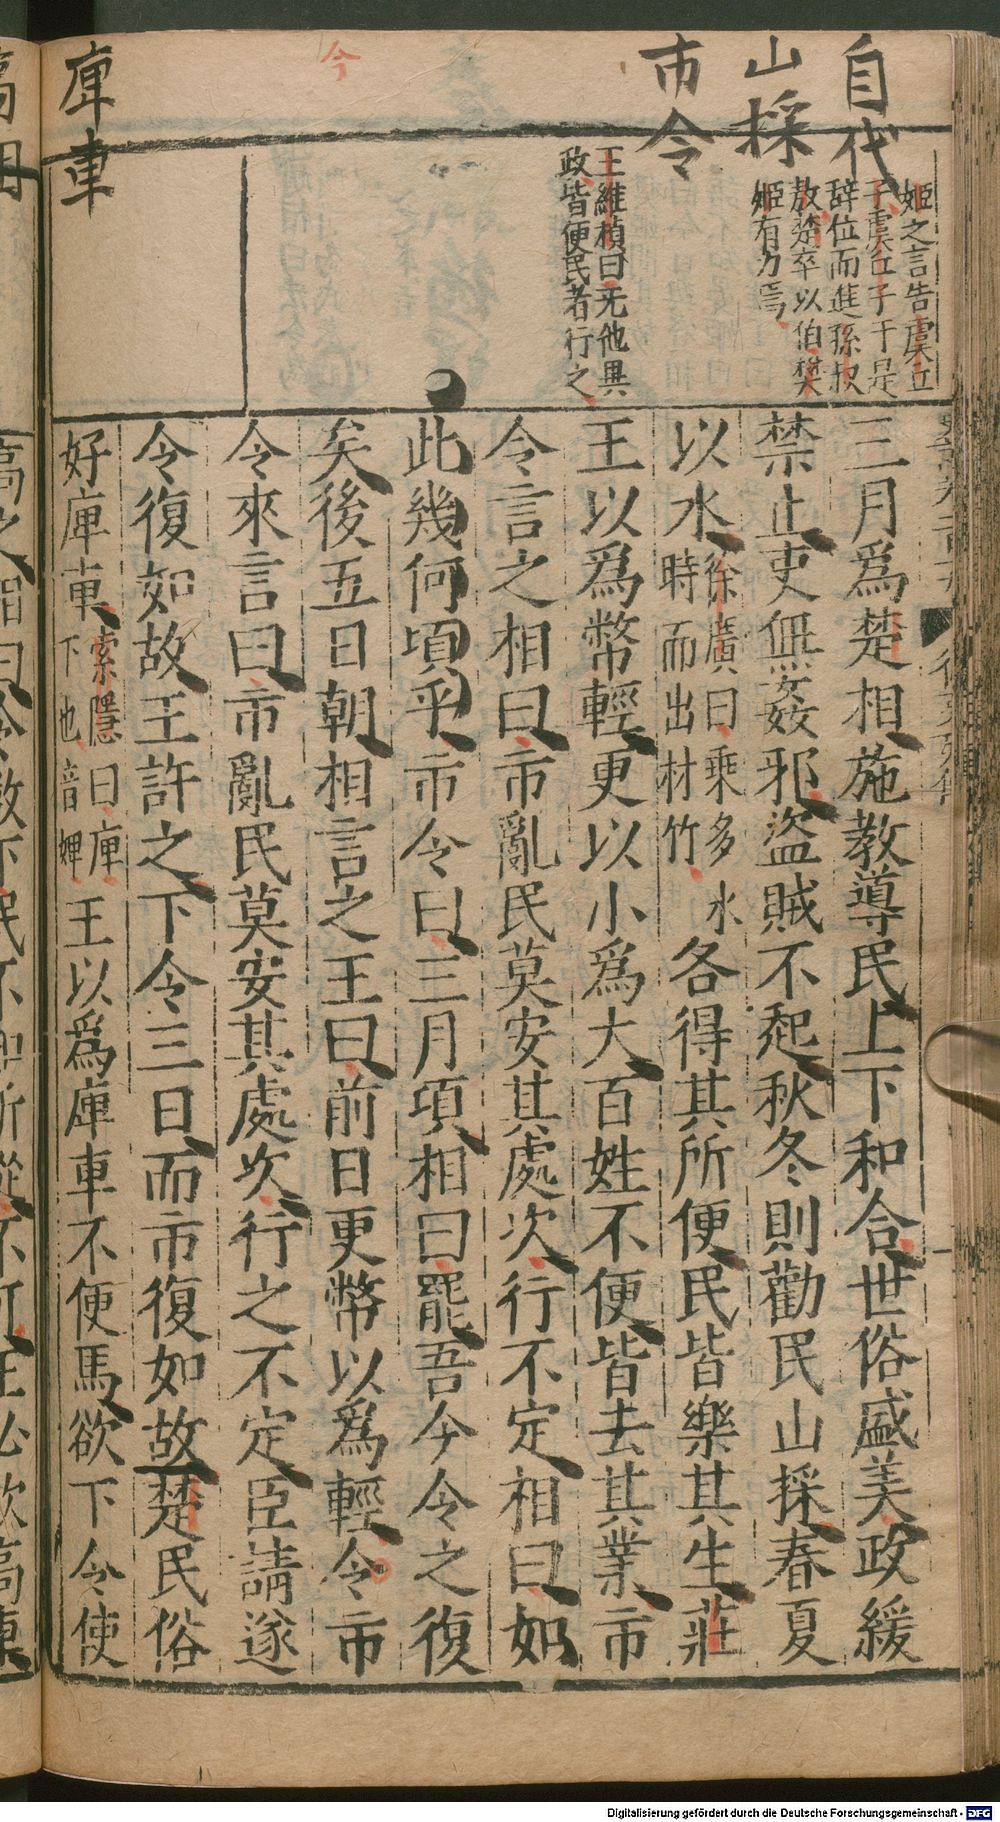 自代
山採
市令
庳車
今
姬之言告虞丘
子虞丘子于是
辞位而進孫叔
敖楚卒以伯樊
姬有力焉
王維楨曰无他異
政皆便民者行之
三月爲楚相施教導民上下和合世俗盛美政緩
禁止吏無姦邪盜賊不起秋冬則勸民山採春夏
以水
徐廣曰乘多水
時而出材竹
各得其所便民皆樂其生莊
王以爲幣輕更以小爲大百姓不便皆去其業市
令言之相曰市亂民莫安其處次行不定相曰如
此幾何頃乎市令曰三月頃相曰罷吾今令之復
矣後五日朝相言之王曰前日更幣以爲輕今市
令來言曰市亂民莫安其處次行之不定臣請遂
令復如故王許之下令三日而市復如故楚民俗
好庳車
索隱曰庳
下也音婢
王以爲庳車不便馬欲下令使
Digitalisierung gefördert durch die Deutsche Forschungsgemeinschaft - DFG